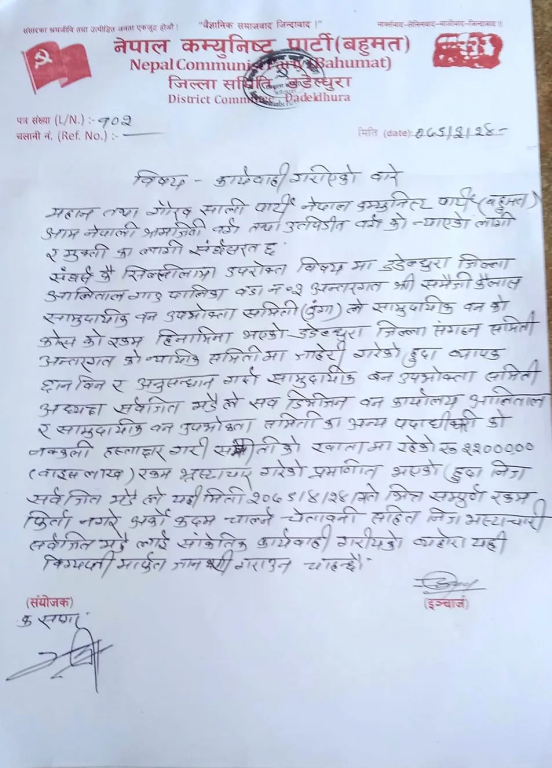 संसारका श्रमजीवि तथा उत्पीडित जनता एकजुट होऔं ! "वैज्ञानिक समाजवाद जिन्दावाद !" मार्क्सवाद-लेनिनवाद-माओवाद-जिन्दावाद !!
नेपाल कम्युनिष्ट पार्टी(बहुमत)
Nepal Communist Party (Bahumat)
जिल्ला समिति, डडेल्धुरा
District Committee, Dadeldhura
पत्र संख्या (L/N.) :- १०२
चलानी नं. (Ref. No.) :-
मिति (date):
विषय - कार्यवाही गरीएको बारे
महान तथा गौरव साली पार्टी नेपाल कम्युनिस्ट पार्टी (बहुमत)
आम नेपाली श्रमजिवी वर्ग तथा उत्पिडित वर्ग को न्याएको लागी
र मुक्ती का लागी संर्घसरत छ
संर्घर्स कै सिलसीलामा उपरोक्त विषय मा डडेल्धुरा जिल्ला
आलिताल गाउ पालिका वडा नं ०२ अन्तरगत श्री समैजी
सामुदायीक वन उपभोक्ता समिती (दुंगा) ले सामुदायीक वन को
कोस को रकम हिनामिना भएको डडेल्धुरा जिल्ला संगठन समिती
अन्तरगत को न्यायीक समिती मा जाहेरी गरेको हुदा व्यापक
छान विन र अनुसन्धान गर्दा सामुदायीक वन उपभोक्ता समिती
अध्यक्ष सर्वजित मडै ले सव डिभीजन वन कार्यालय आलिताल
र सामुदायीक वन उपभोक्ता समिती का अन्य पदाधीकारी को
नक्कली हस्ताक्षर गरी समीती को खाता मा रहेको रू २२०००००
(वाइस लाख) रकम भ्रस्टाचार गरेको प्रमाणीत भएको हुदा निज
सर्वजित मडै ले यही मिती २०७९/४/२८ गते भित्र सम्पूर्ण रकम
फिर्ता नगरे अर्को कदम चाल्ने चेतावनी सहित निज भ्रस्टाचारी
सर्वजित मडै लाई सांकेतिक कार्यवाही गरीयको व्यहोरा यही
विग्यप्ती मार्फत जानकारी गराउन चाहन्छौ
(संयोजक)
(इञ्चार्ज)